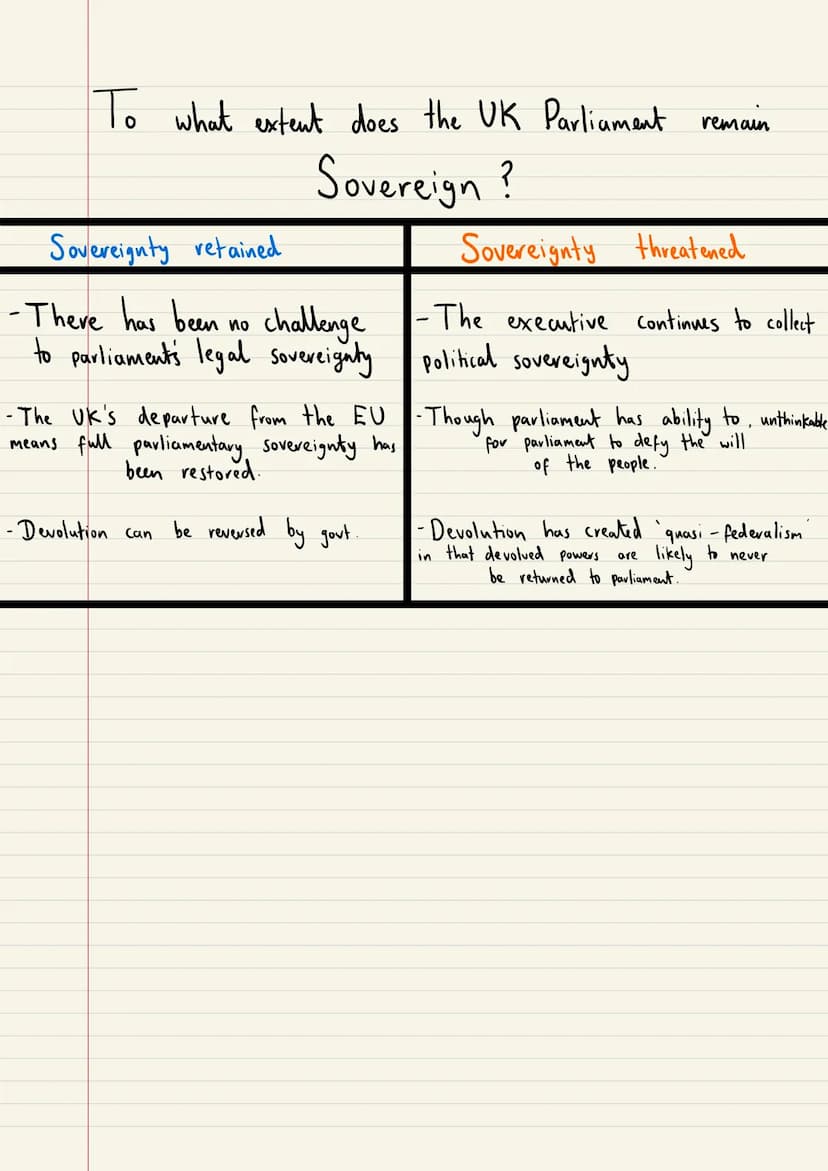 To what extent does the UK Parliament remain
Sovereign?
Sovereignty retained
- There has been no challenge
to parliament's legal sovereignty
- The UK's departure from the EU
means full parliamentary sovereignty has
been restored.
- Devolution can be reversed by govt.
Sovereignty threatened
- The executive continues to collect
political sovereignty
- Though parliament has ability to, unthinkable
for parliament to defy the will
of the people.
- Devolution has created 'quasi-federalism'
in that devolved powers are likely to never
be returned to parliament.